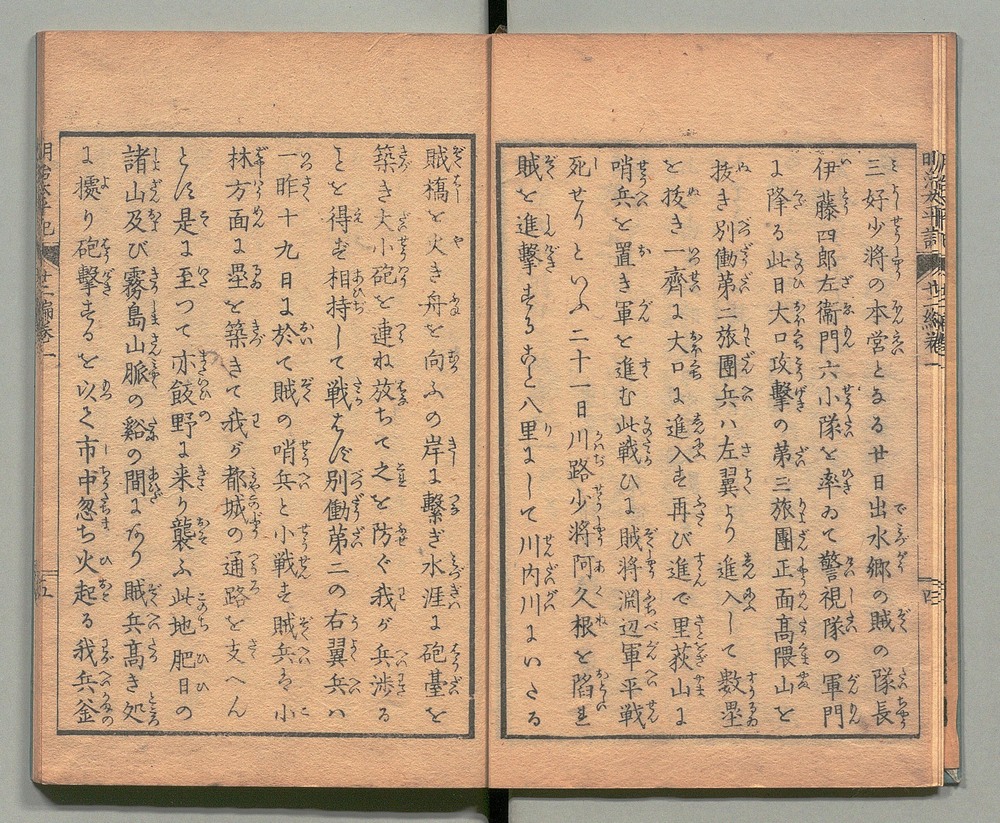 三好少将の本営となる廿日出水郷の賊の隊長
伊藤四郎左衞門六小隊を率ゐて警視隊の軍門
に降る此日大口攻撃の第三旅團正面高隈山を
抜き別働第二旅團兵ハ左翼より進入して数塁
を抜き一齊に大口に進入す再び進で里荻山に
哨兵を置き軍を進む此戦ひに賊将渕辺軍平戦
死せりといふ二十一日川路少将阿久根を陷れ
賊を進撃すること八里にして川内川にいたる
四
賊橋を火き舟を向ふの岸に繋ぎ水涯に砲臺を
築き大小砲を連ね放ちて之を防ぐ我が兵渉る
ことを得ず相持して戦はず別働第二の右翼兵ハ
一昨十九日に於て賊の哨兵と小戦す賊兵は小
林方面に塁を築きて我が都城の通路を支へん
とす是に至つて亦飯野に来り襲ふ此地肥日の
諸山及び霧島山脈の谿の間にあり賊兵高き処
に擾り砲撃するを以て市中忽ち火起る我兵釜
明治太平記
廿二編巻一
五